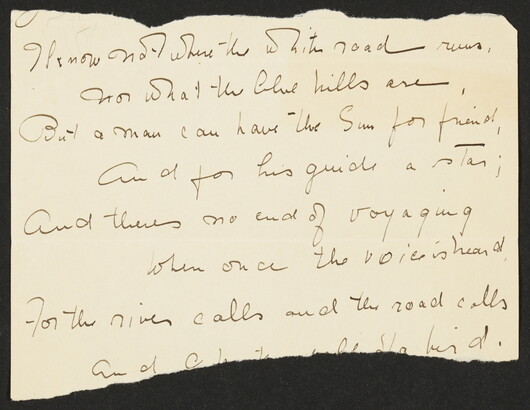 I know not where the white road runs,
nor what the blue hills are,
But a man can have the Sun for friend,
And for his guide a star;
And theres no end of voyaging
when once the voice is heard,
For the river calls and the road calls
And a bird.